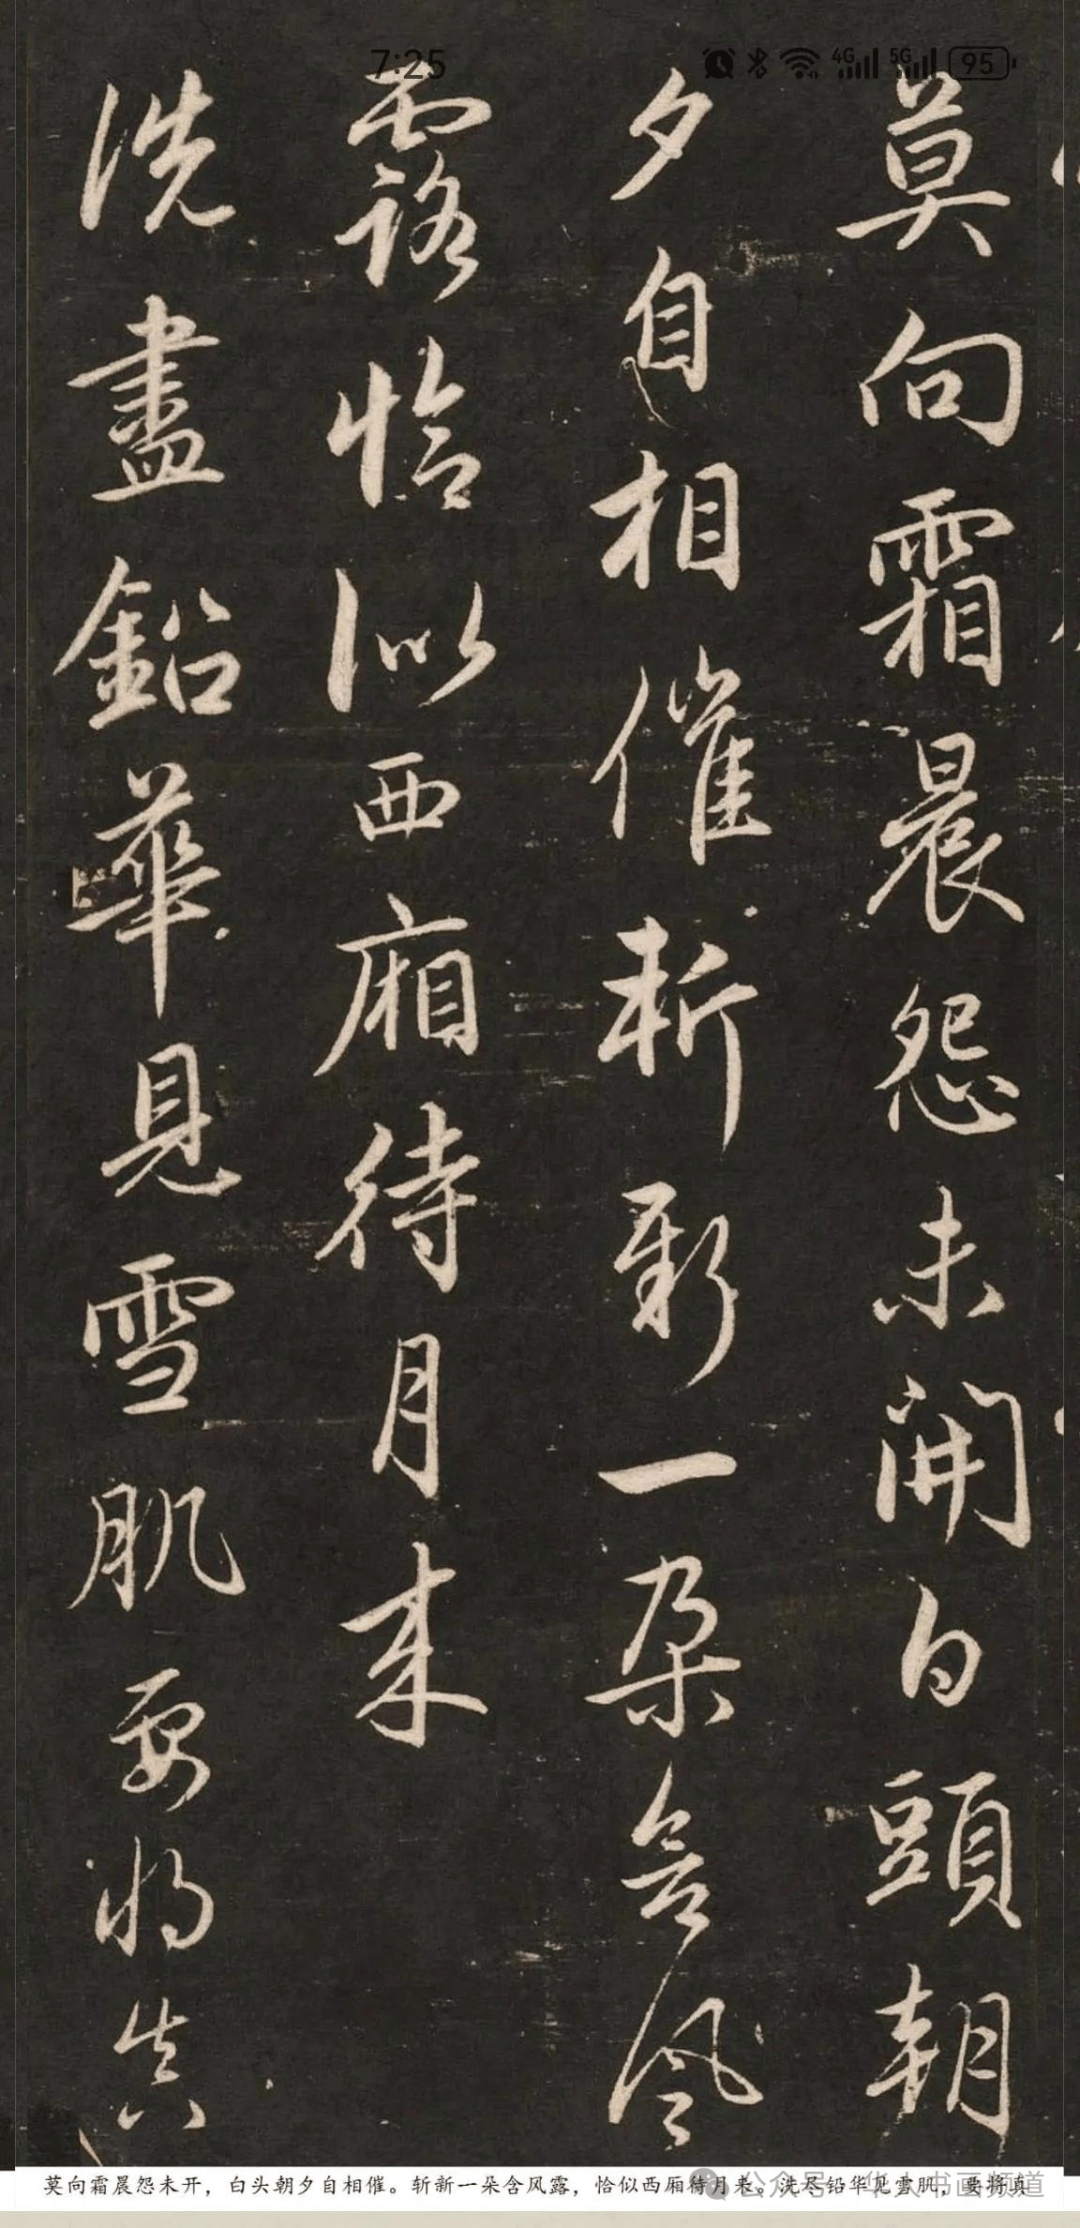 7:25 4G 5G 95
莫向霜晨怨未開白頭朝
夕自相催斬新一朵含風
露恰似西廂待月来
洗盡鉛華見雪肌要將真
莫向霜晨怨未开，白头朝夕自相催。斩新一朵含风露，恰似西厢待月来。洗尽铅华见雪肌，要将真
公众号 华人书画频道